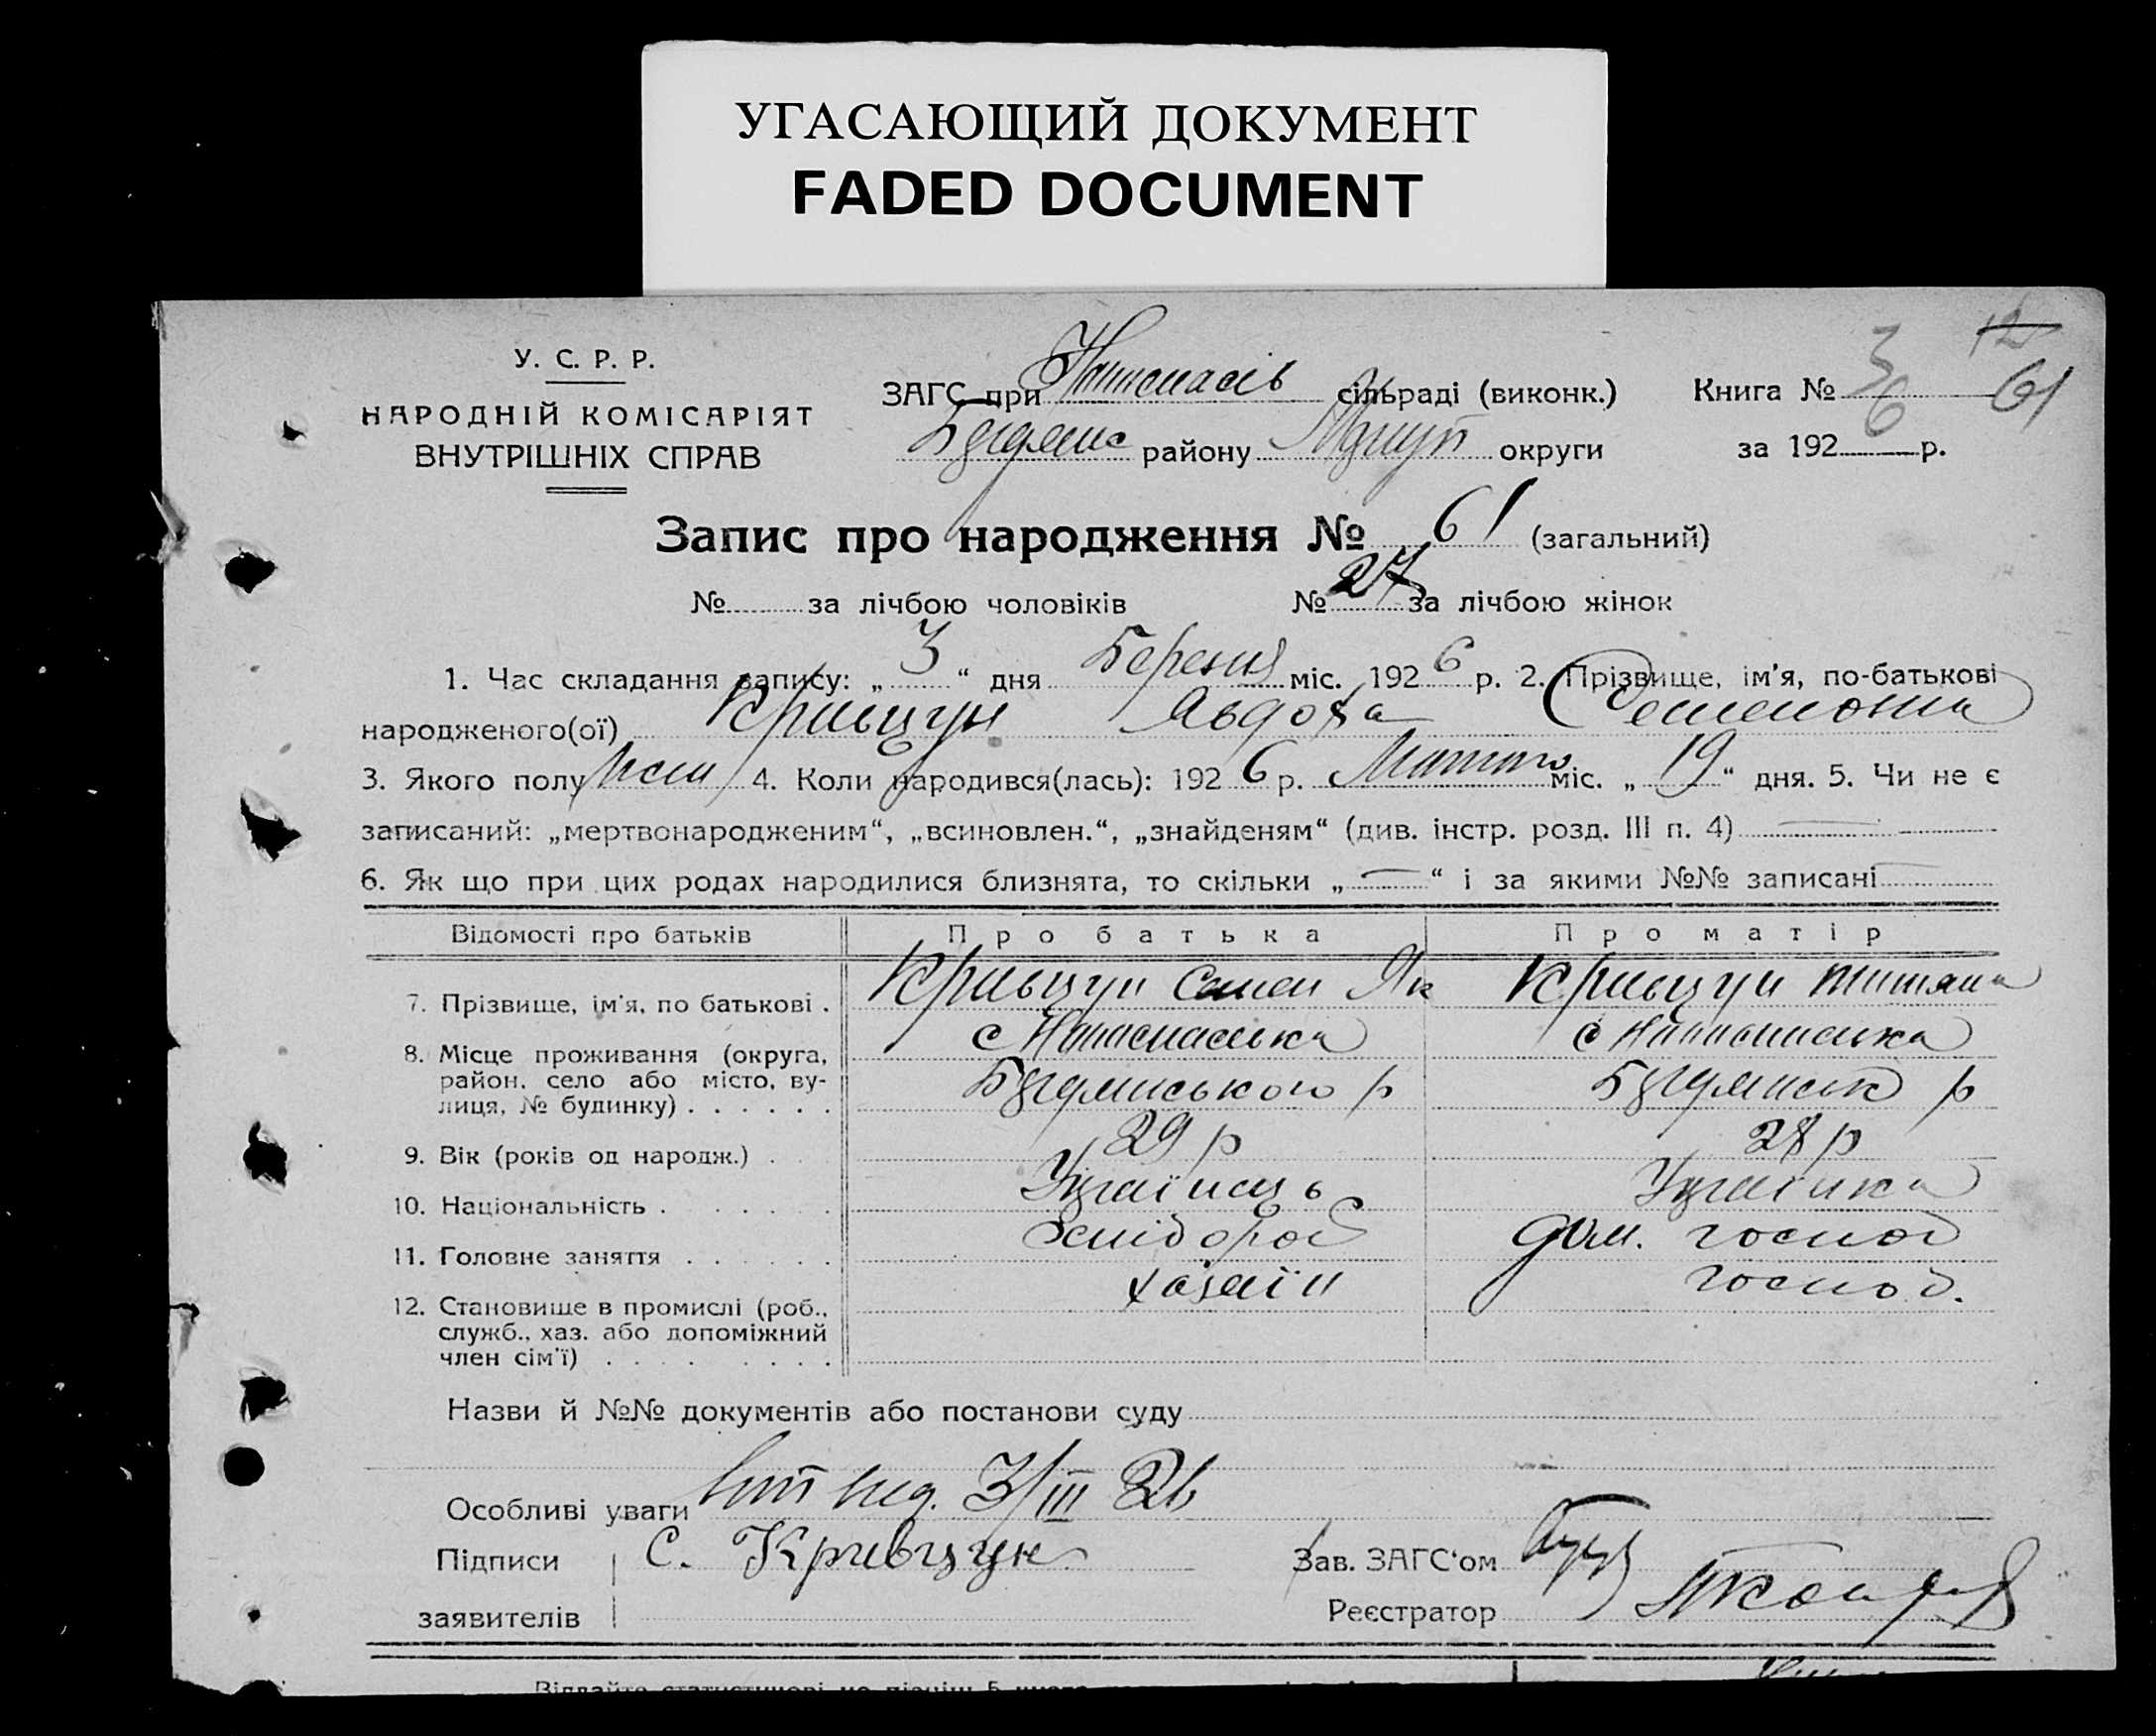 УГАСАЮЩИЙ ДОКУМЕНТ
FADED DOCUMENT
У. С. Р. Р.
НАРОДНІЙ КОМІСАРІЯТ
ВНУТРІШНІХ СПРАВ
ЗАГС при сільраді (виконк.)
району округи
Книга № 3 12 61
за 192 6 р.
Запис про народження № 61 (загальний)
№ за лічбою чоловіків № 27 за лічбою жінок
1. Час складання запису: „ 3 “ дня Березня міс. 192 6 р. 2. Прізвище, ім'я, по-батькові
народженого(ої) Кривцун Авдотя Семеновна
3. Якого полу жен 4. Коли народився(лась): 192 6 р. Лютого міс. „ 19 “ дня. 5. Чи не є
записаний: „мертвонародженим“, „всиновлен.“, „знайденям“ (див. інстр. розд. III п. 4) —
6. Як що при цих родах народилися близнята, то скільки „ — “ і за якими №№ записані —
Відомості про батьків Про батька Про матір
7. Прізвище, ім'я, по батькові . Кривцун Семен Як Кривцун Титяна
8. Місце проживання (округа,
район, село або місто, ву-
лиця, № будинку) . . . . . .
9. Вік (років од народж.) . 29 р 28 р
10. Національність . . . . . . Українець Українка
11. Головне заняття . . . . . . Хлібороб дом. господ
12. Становище в промислі (роб., хазяїн господ.
служб., хаз. або допоміжний
член сім'ї) . . . . . . . .
Назви й №№ документів або постанови суду
Особливі уваги вид. 3/III 26
Підписи С. Кривцун Зав. ЗАГС'ом
заявителів Реєстратор